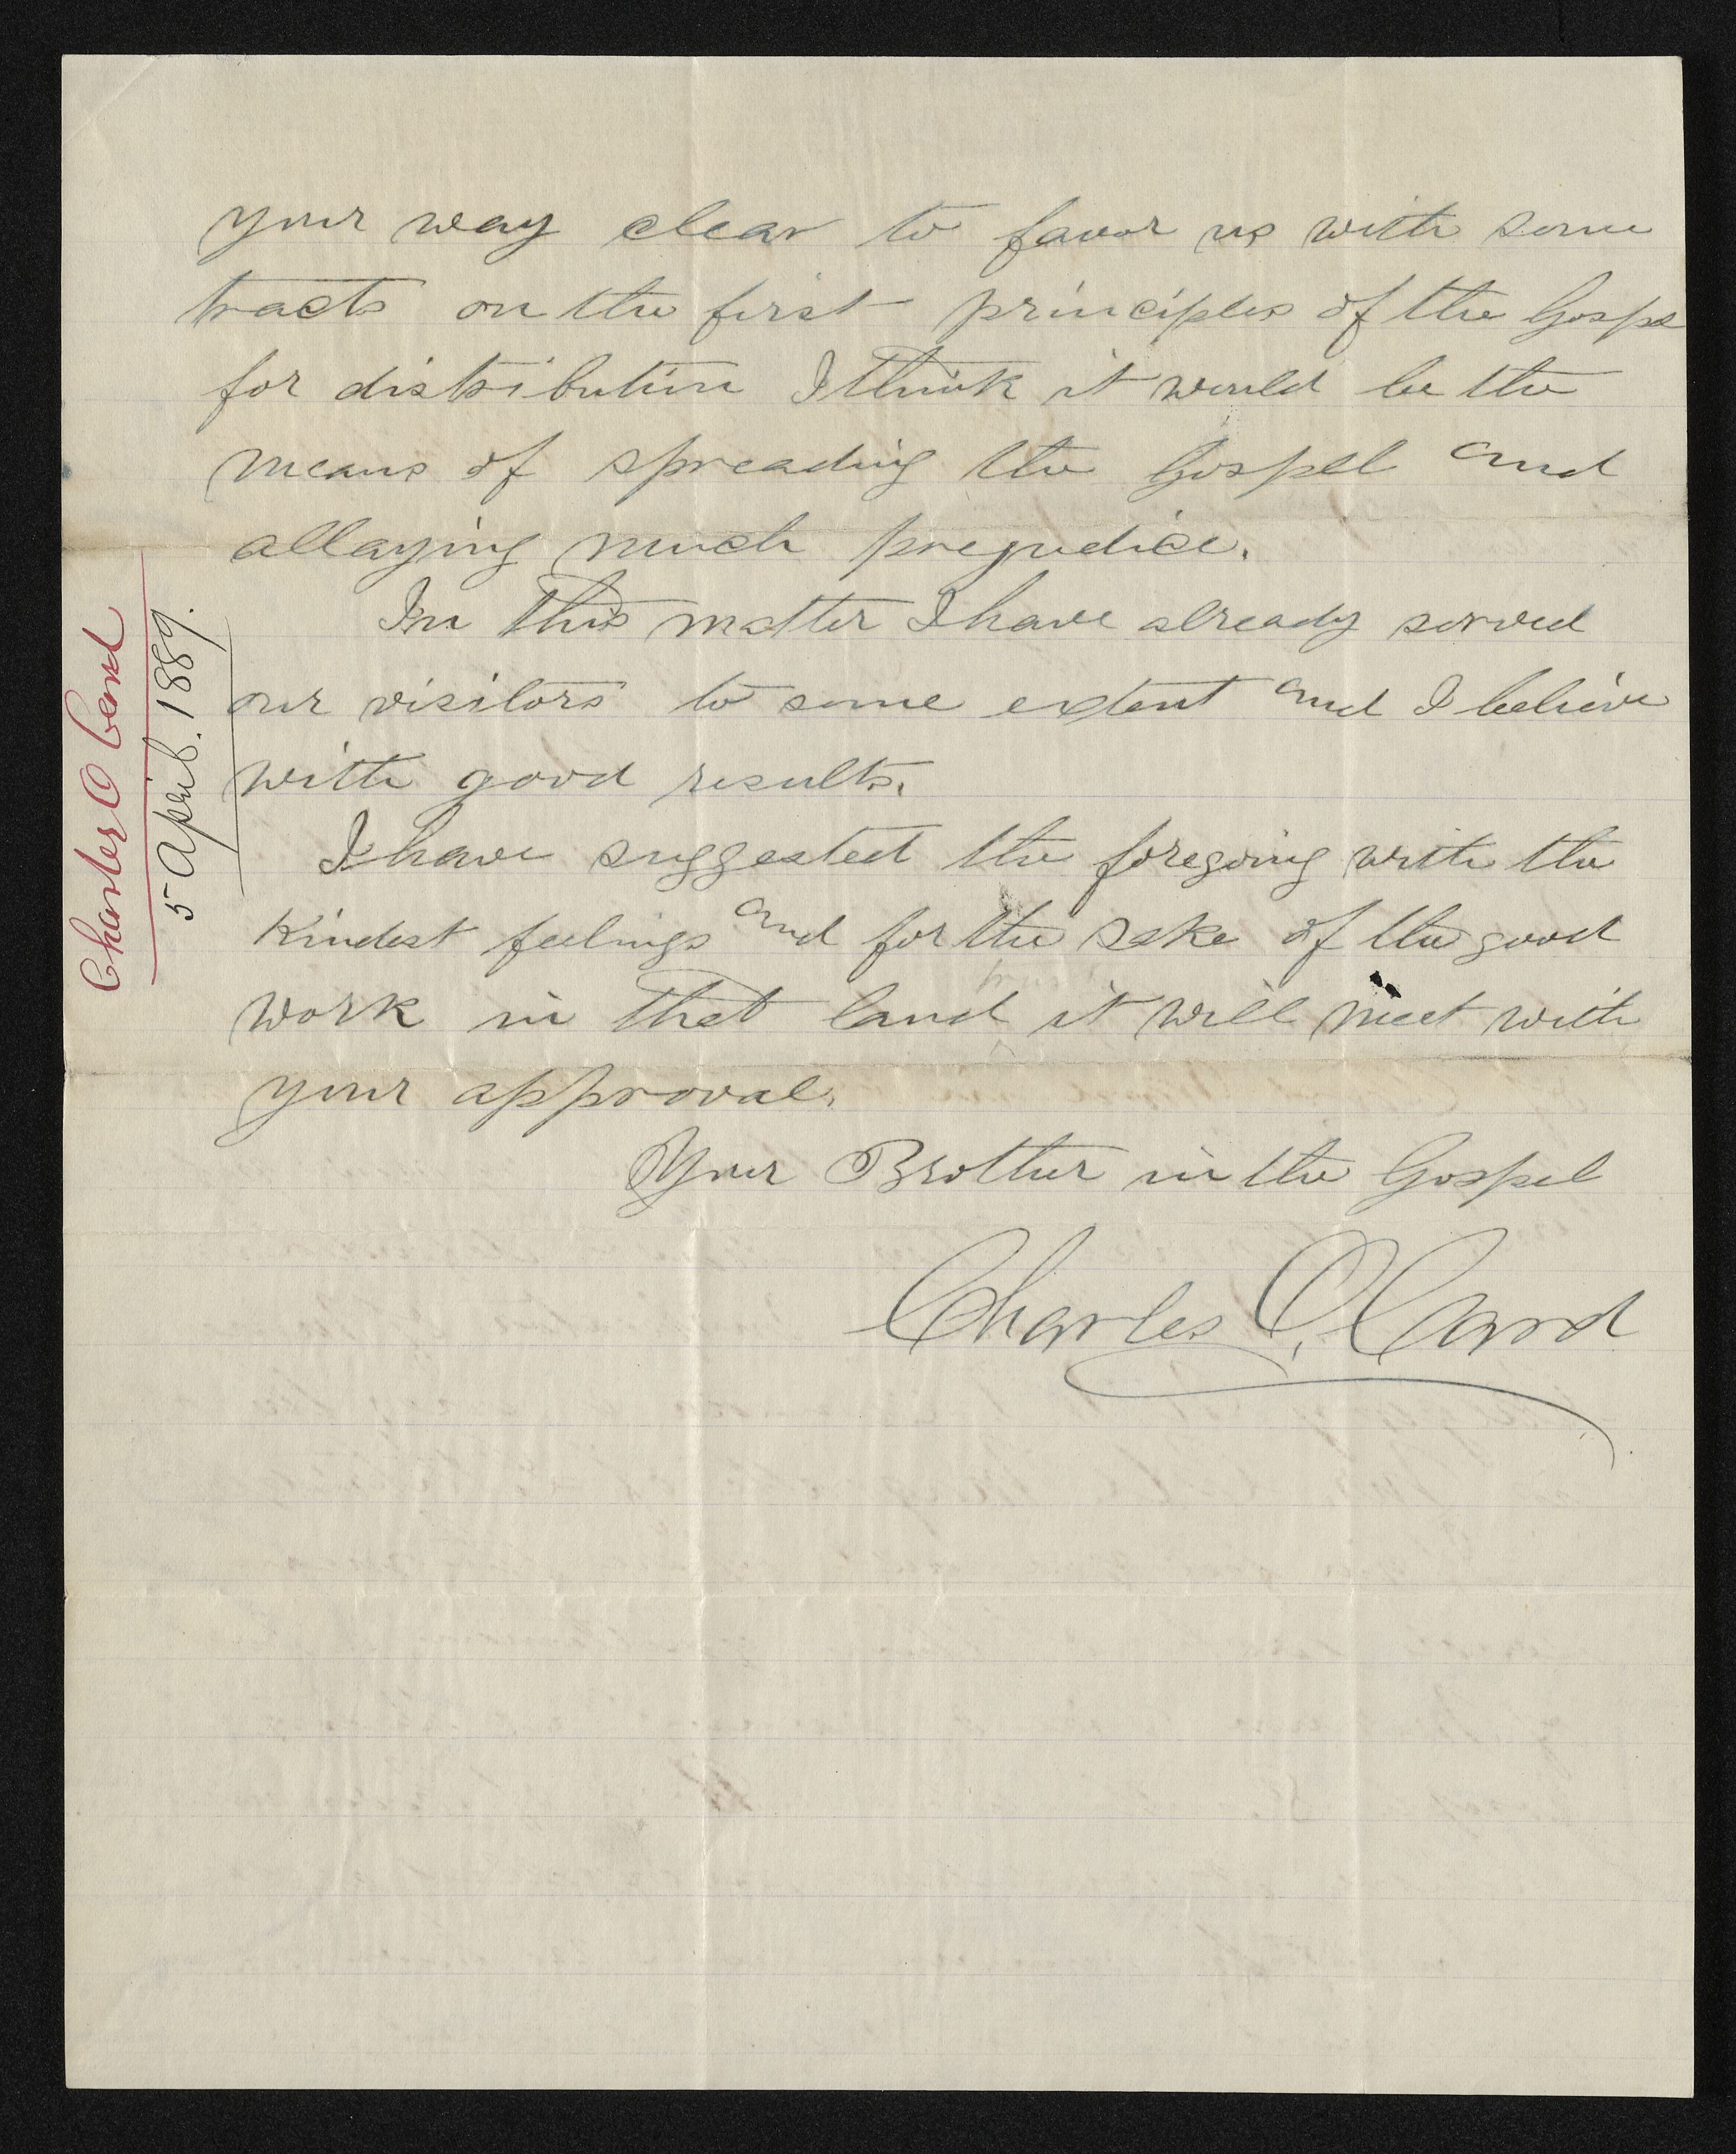 your way clear to favor us with some
tracts on the first principles of the Gospe
for distribution I think it would be the
means of spreading the Gospel and
allaying much prejudice.
In this matter I have already served
our visitors to some extent and I believe
with good results.
I have suggested the foregoing with the
kindest feelings and for the sake of the good
work in that land it will meet with
your approval.
Your Brother in the Gospel
Charles O. Card
Charles O Card
5 April. 1889.